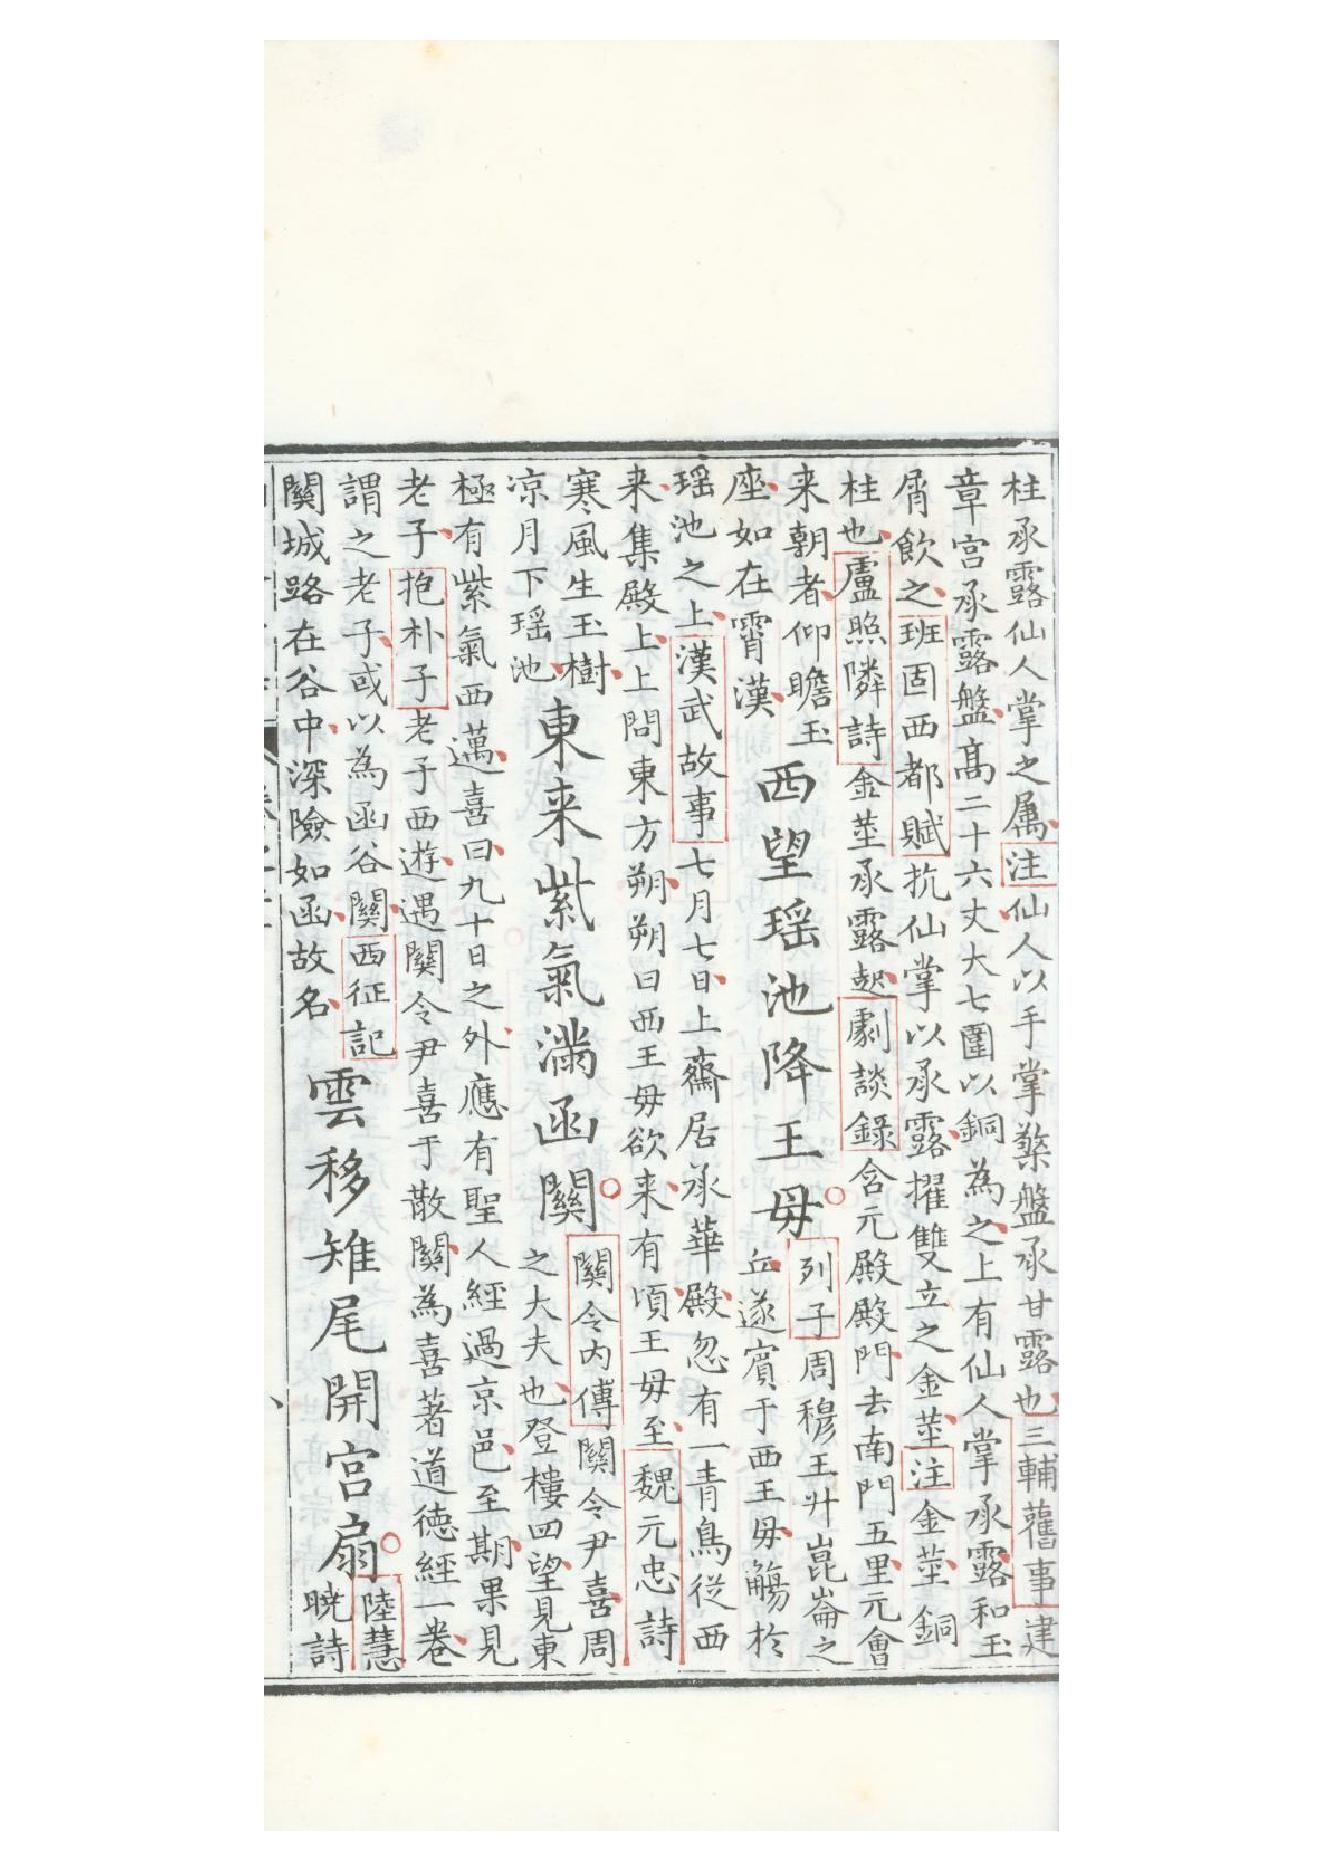 柱承露仙人掌之属注仙人以手掌擎盤承甘露也三輔舊事建
章宮承露盤高二十六丈大七圍以銅為之上有仙人掌承露和玉
屑飲之班固西都賦抗仙掌以承露擢雙立之金莖注金莖銅
柱也盧照隣詩金莖承露起劇談錄含元殿殿門去南門五里元會
来朝者仰瞻玉
座如在霄漢
西望瑶池降王母
列子周穆王升崑崙之
丘遂賓于西王母觴於
瑶池之上漢武故事七月七日上齋居承華殿忽有一青鳥従西
来集殿上上問東方朔朔曰西王母欲来有頃王母至魏元忠詩
寒風生玉樹
凉月下瑶池
東来紫氣滿函關
關令内傳關令尹喜周
之大夫也登樓四望見東
極有紫氣西邁喜曰九十日之外應有聖人經過京邑至期果見
老子抱朴子老子西遊遇關令尹喜于散關為喜著道徳經一卷
謂之老子或以為函谷關西征記
關城路在谷中深險如函故名
雲移雉尾開宮扇
陸慧
曉詩